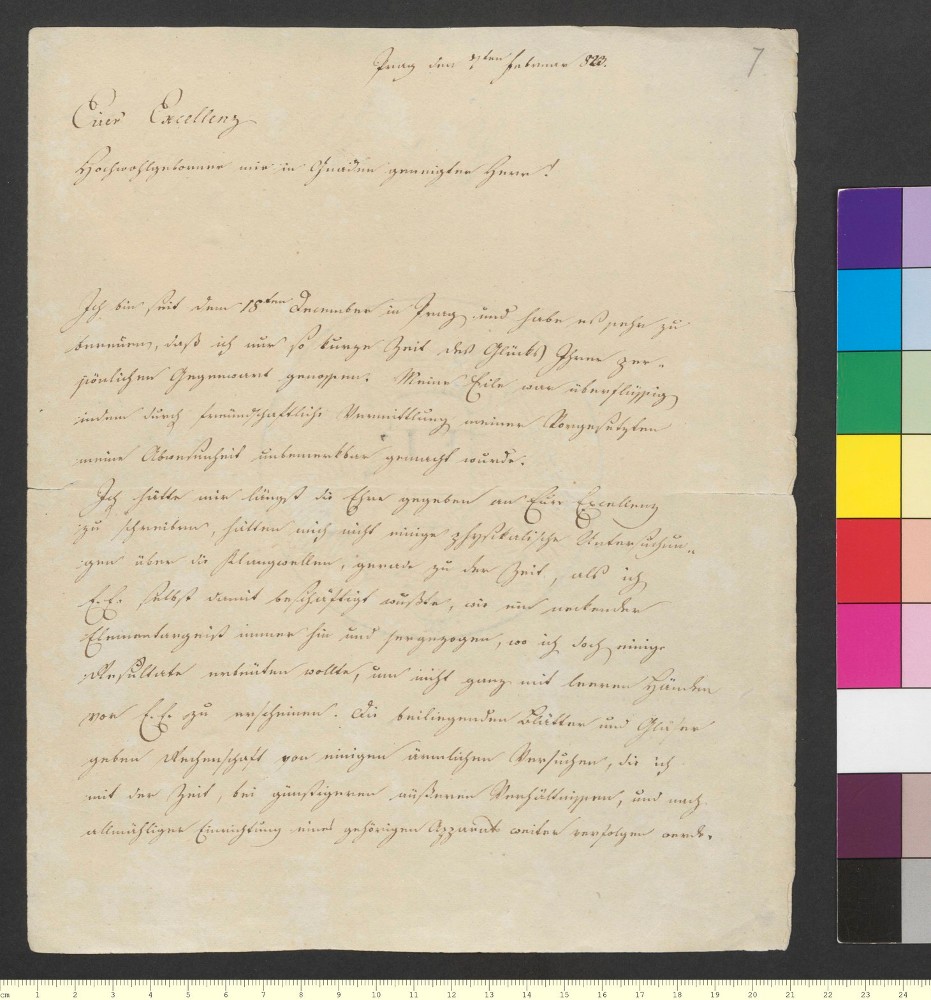 Prag den 9ten Februar 823.
7
Euer Excellenz
Hochwohlgeborner mir in Gnaden geneigter Herr!
Ich bin seit dem 18ten December in Prag und habe es sehr zu
bereuen, daß ich nur so kurze Zeit des Glücks Ihrer per-
sönlichen Gegenwart genossen. Meine Eile war überflüssig
indem durch freundschaftliche Vermittlung meiner Vorgesetzten
meine Abwesenheit unbemerkbar gemacht wurde.
Ich hätte mir längst die Ehre gegeben an Euer Excellenz
zu schreiben, hätten mich nicht einige physikalische Untersuchun-
gen über die Klangwellen, gerade zu der Zeit, als ich
E.E. selbst damit beschäftigt wußte, wie ein neckender
Elementargeist immer hin und hergezogen, wo ich doch einige
Resultate erbeuten wollte, um nicht ganz mit leeren Händen
vor E.E. zu erscheinen. Die beiliegenden Blätter und Gläser
geben Rechenschaft von einigen ärmlichen Versuchen, die ich
mit der Zeit, bei günstigeren äußeren Verhältnissen, und nach
allmähliger Einrichtung eines gehörigen Apparats weiter verfolgen werde.